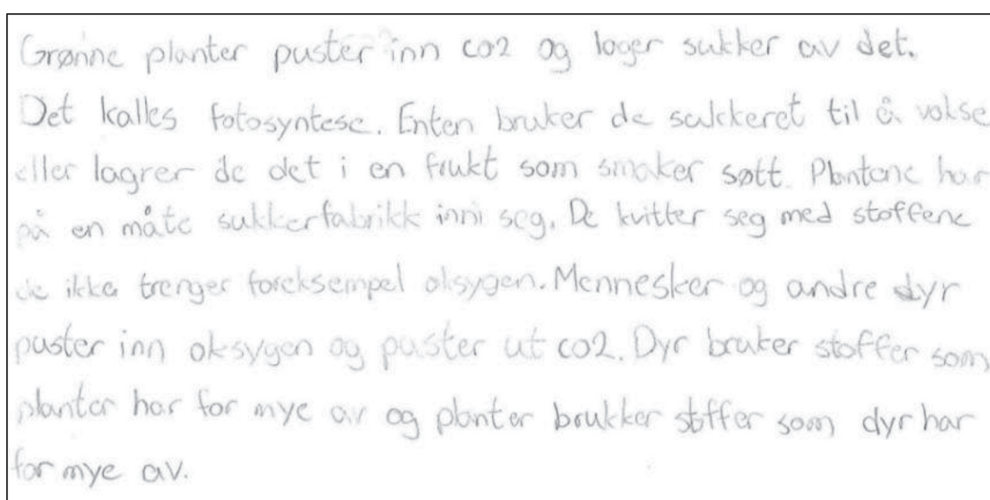 Grønne planter puster inn co2 og lager sukker av det.
Det kalles fotosyntese. Enten bruker de sukkeret til å vokse
eller lagrer de det i en frukt som smaker søtt. Plantene har
på en måte sukkerfabrikk inni seg. De kvitter seg med stoffene
de ikke trenger foreksempel oksygen. Mennesker og andre dyr
puster inn oksygen og puster ut co2. Dyr bruker stoffer som
planter har for mye av og planter brukker stoffer som dyr har
for mye av.